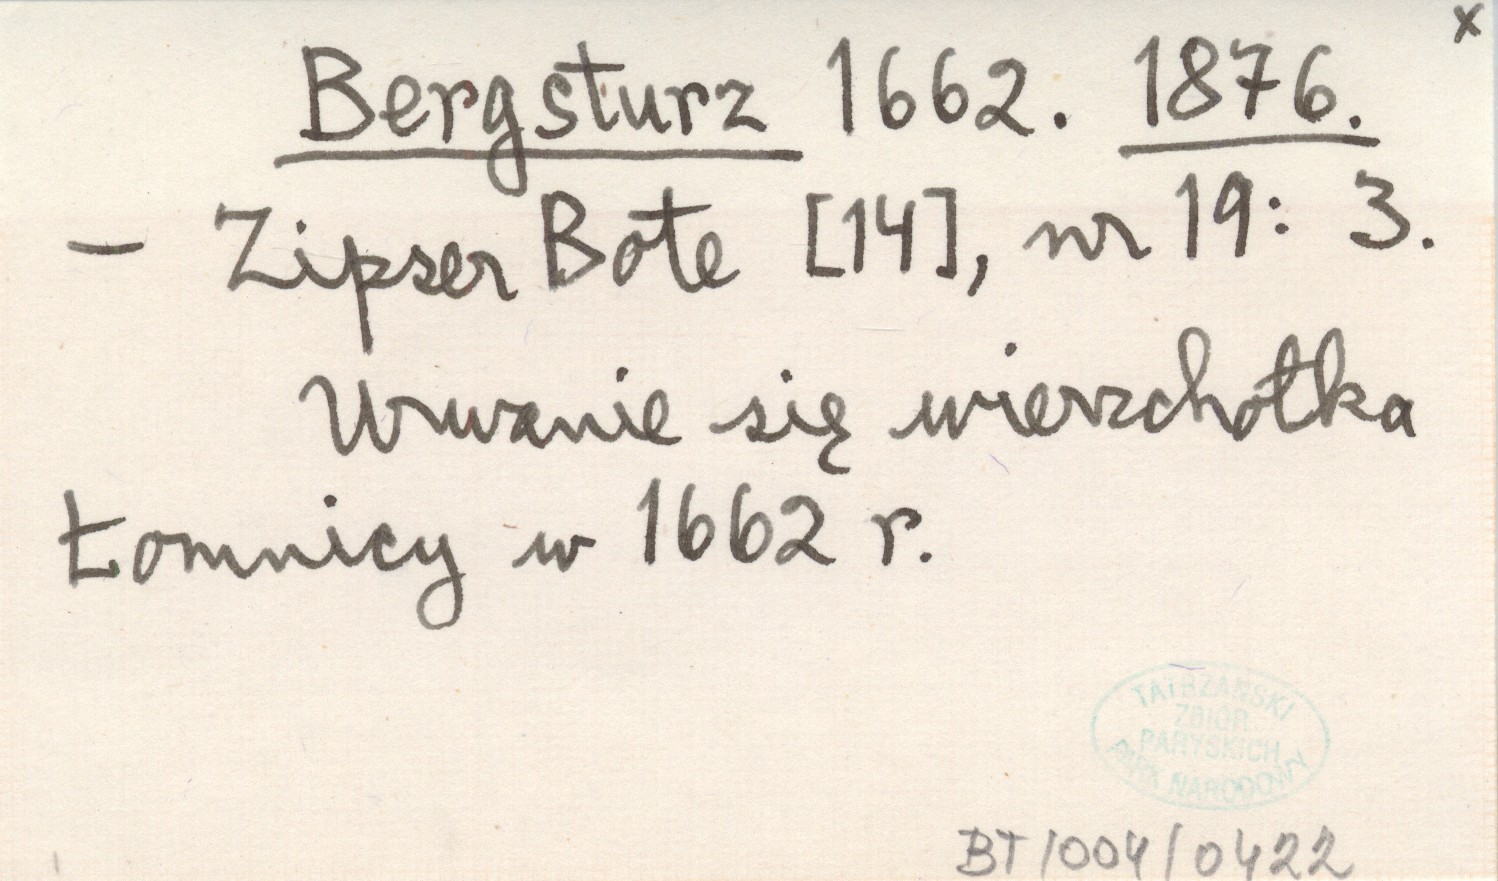 x
Bergsturz 1662. 1876.
– Zipser Bote [14], nr 19: 3.
Urwanie się wierzchołka
Łomnicy w 1662 r.
TATRZAŃSKI
ZBIÓR
PARYSKICH
PARK NARODOWY
BT/004/0422